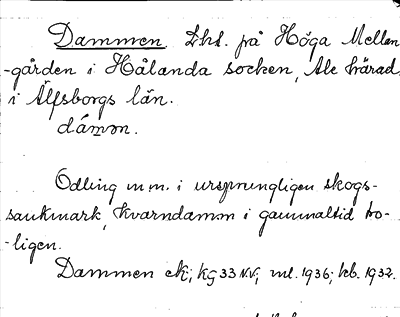 Dammen Lht. på Höga Mellan
-gården i Hålanda socken, Ale härad,
i Älfsborgs län.
dámmn.
Odling m m. i ursprungligen skogs-
sankmark, kvarndamm i gammaltid tro-
-ligen.
Dammen ek; kg 33 N.V; ml. 1936; hb. 1932.